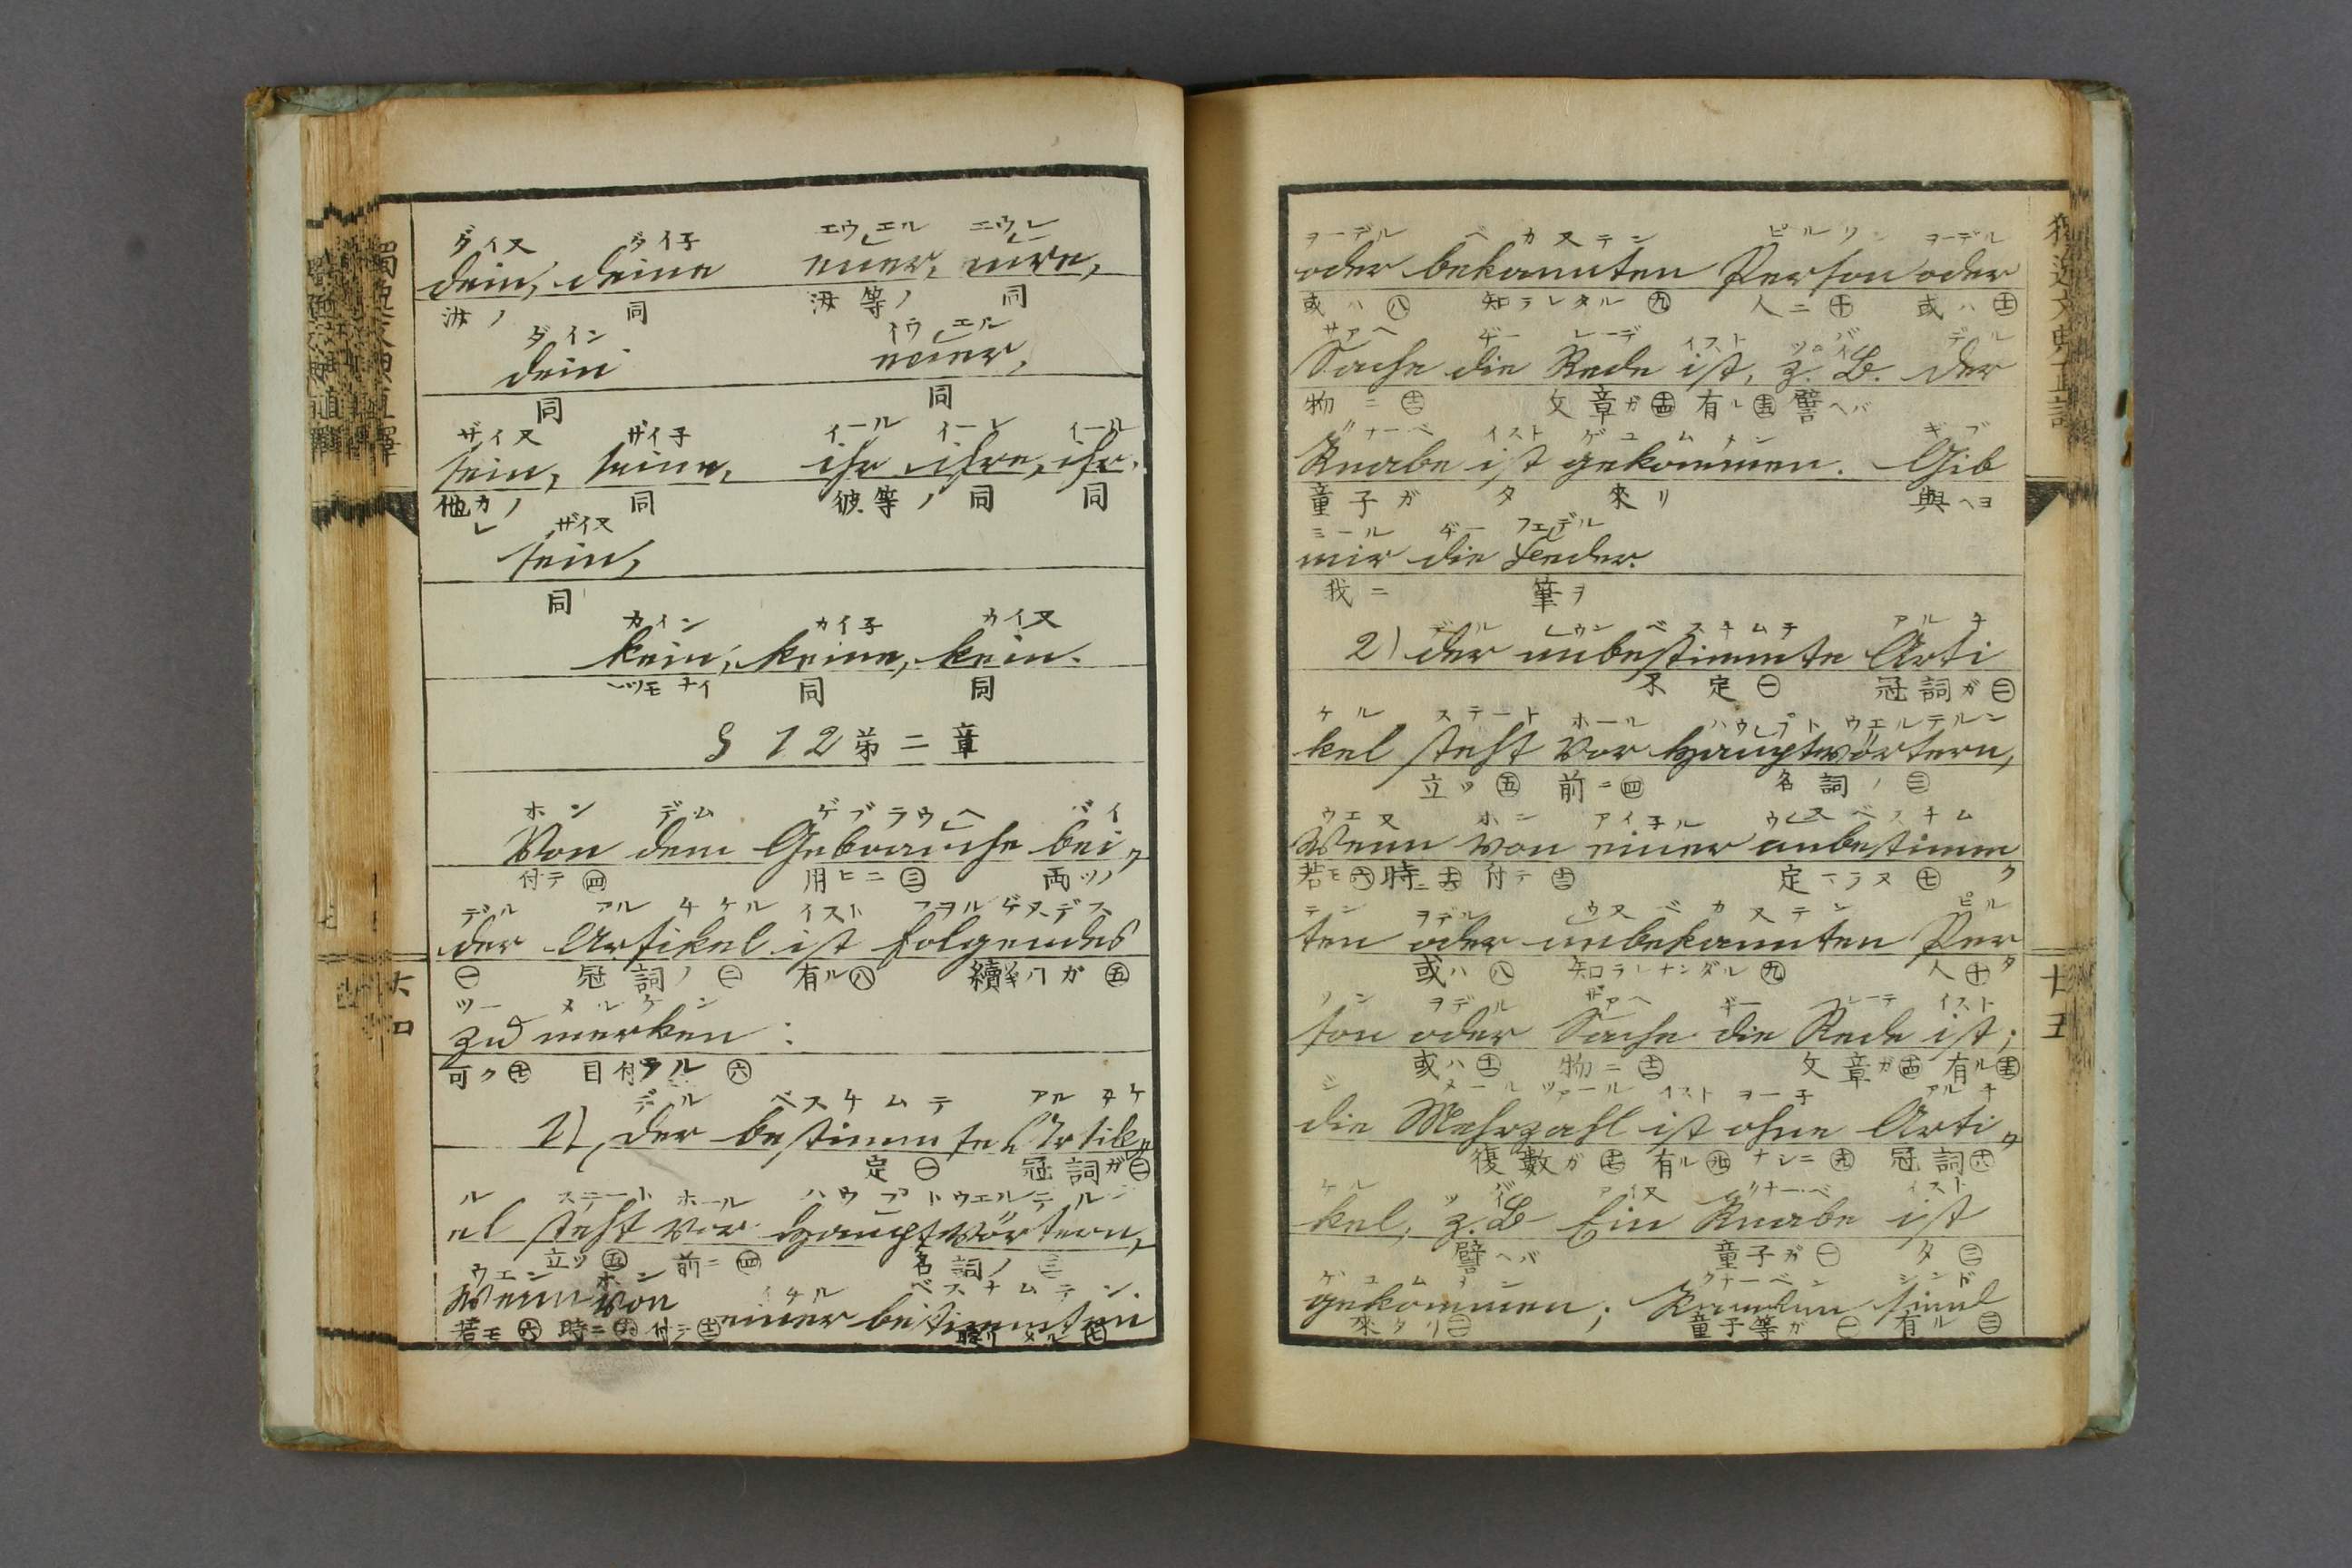 ダイヌ ダイ子 エウエル エウレ
dein, deine euer, eure,
汝ノ 同 汝等ノ 同
ダイン イウエル
dein euer,
同 同
ザイヌ ザイ子 イール イーレ イール
sein, seine, ihr, ihre, ihr.
他カレノ 同 彼等ノ 同 同
ザイヌ
sein,
同
カイン カイ子 カイヌ
kein, keine, kein.
一ツモナイ 同 同
§ 12 第二章
ホン デム ゲブラウヘ バイ
Von dem Gebrauche bei
付テ㊃ 用ヒニ㊂ 両ツノ
デル アルチケル イスト フヲルゲヌデス
der Artikel ist folgendes
㊀ 冠詞ノ㊁ 有ル㊇ 續キガ㊄
ツー メルケン
zu merken :
可ク㊆ 目付ラル㊅
デル ベスチムテ アルチケ
1) der bestimmte Artik
定㊀ 冠詞ガ㊁
ル ステート ホール ハウプトウエルテルン
el steht vor Hauptwörtern,
立ツ㊄ 前ニ㊃ 名詞ノ㊂
ウエン ホン イ子ル ベスチムテン
Wenn von einer bestimmten
若モ㊅ 時ニ⑯ 付テ⑬
大四
ヲーデル ベカヌテン ピルソン ヲーデル
oder bekannten Person oder
或ハ㊇ 知ラレタル㊈ 人ニ㊉ 或ハ⑪
ザアヘ ヂー レーデ イスト ツムバイ デル
Sache die Rede ist, z. B. der
物ニ⑫ 文章ガ⑭ 有ル⑮ 譬ヘバ
クナーベ イスト ゲコムメン ギブ
Knabe ist gekommen. Gib
童子ガ タ 來リ 與ヘヨ
ミール ヂー フエデル
mir die Feder.
我ニ 筆ヲ
デル ウンベスチムテ アルチ
2) der unbestimmte Arti
不定㊀ 冠詞ガ㊁
ケル ステート ホール ハウプトウエルテルン
kel steht vor Hauptwörtern,
立ツ㊄ 前ニ㊃ 名詞ノ㊂
ウエヌ ホン アイ子ル ウヌベスチム
Wenn von einer unbestimm
若モ㊅ 時ニ⑯ 付テ⑬ 定マラヌ㊆
テン ヲデル ウヌベカヌテン ピル
ten oder unbekannten Per
或ハ㊇ 知ラレナンダル㊈ 人㊉
ソン ヲデル ザアヘ ヂー レーデ イスト
son oder Sache die Rede ist;
或ハ⑪ 物ニ⑫ 文章ガ⑭ 有ル⑮
ジ メールツアール イスト ヲー子 アルチ
die Mehrzahl ist ohne Arti
復數ガ⑰ 有ル ナシニ 冠詞
ケル ツバイ アイヌ クナーベ イスト
kel, z. B. Ein Knabe ist
譬ヘバ 童子ガ㊀ タ㊂
ゲコムメン クナーベン シンド
gekommen; Knaben sind
來タリ㊁ 童子等ガ㊀ 有ル㊂
十五